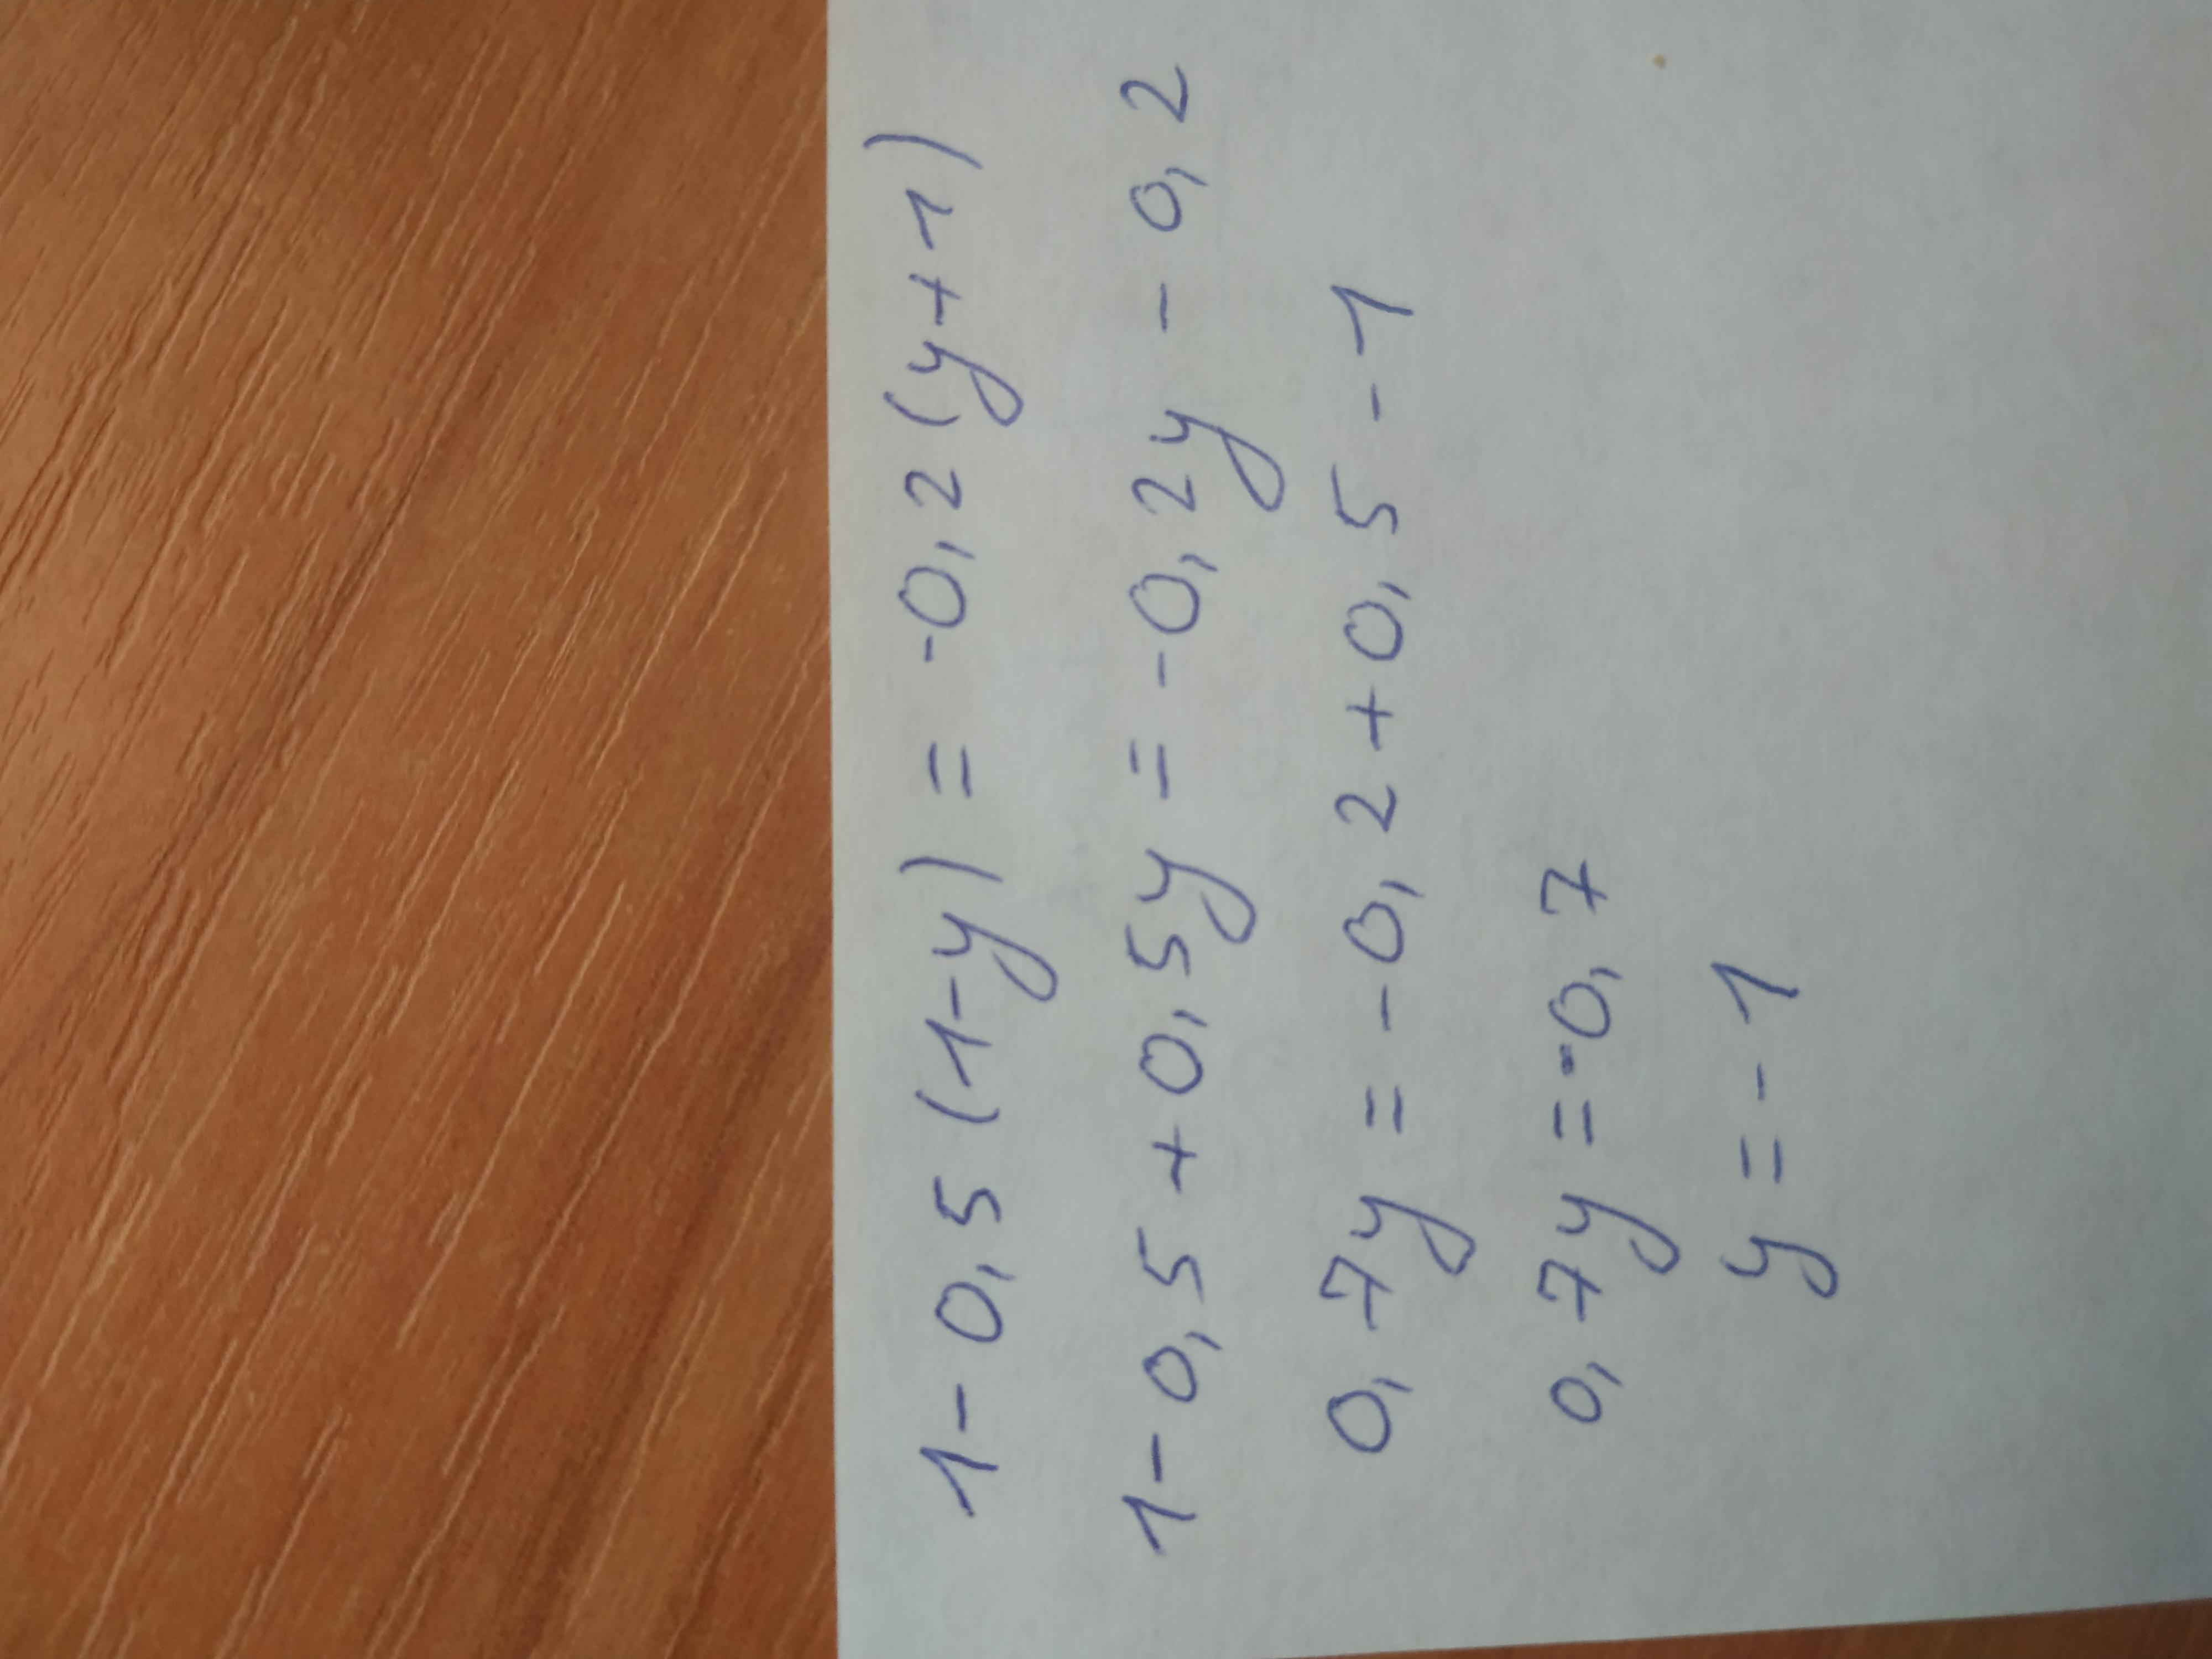 1 - 0,5 (1-y) = -0,2 (y+1)
1 - 0,5 + 0,5y = -0,2y - 0,2
0,7y = -0,2 + 0,5 - 1
0,7y = -0,7
y = -1